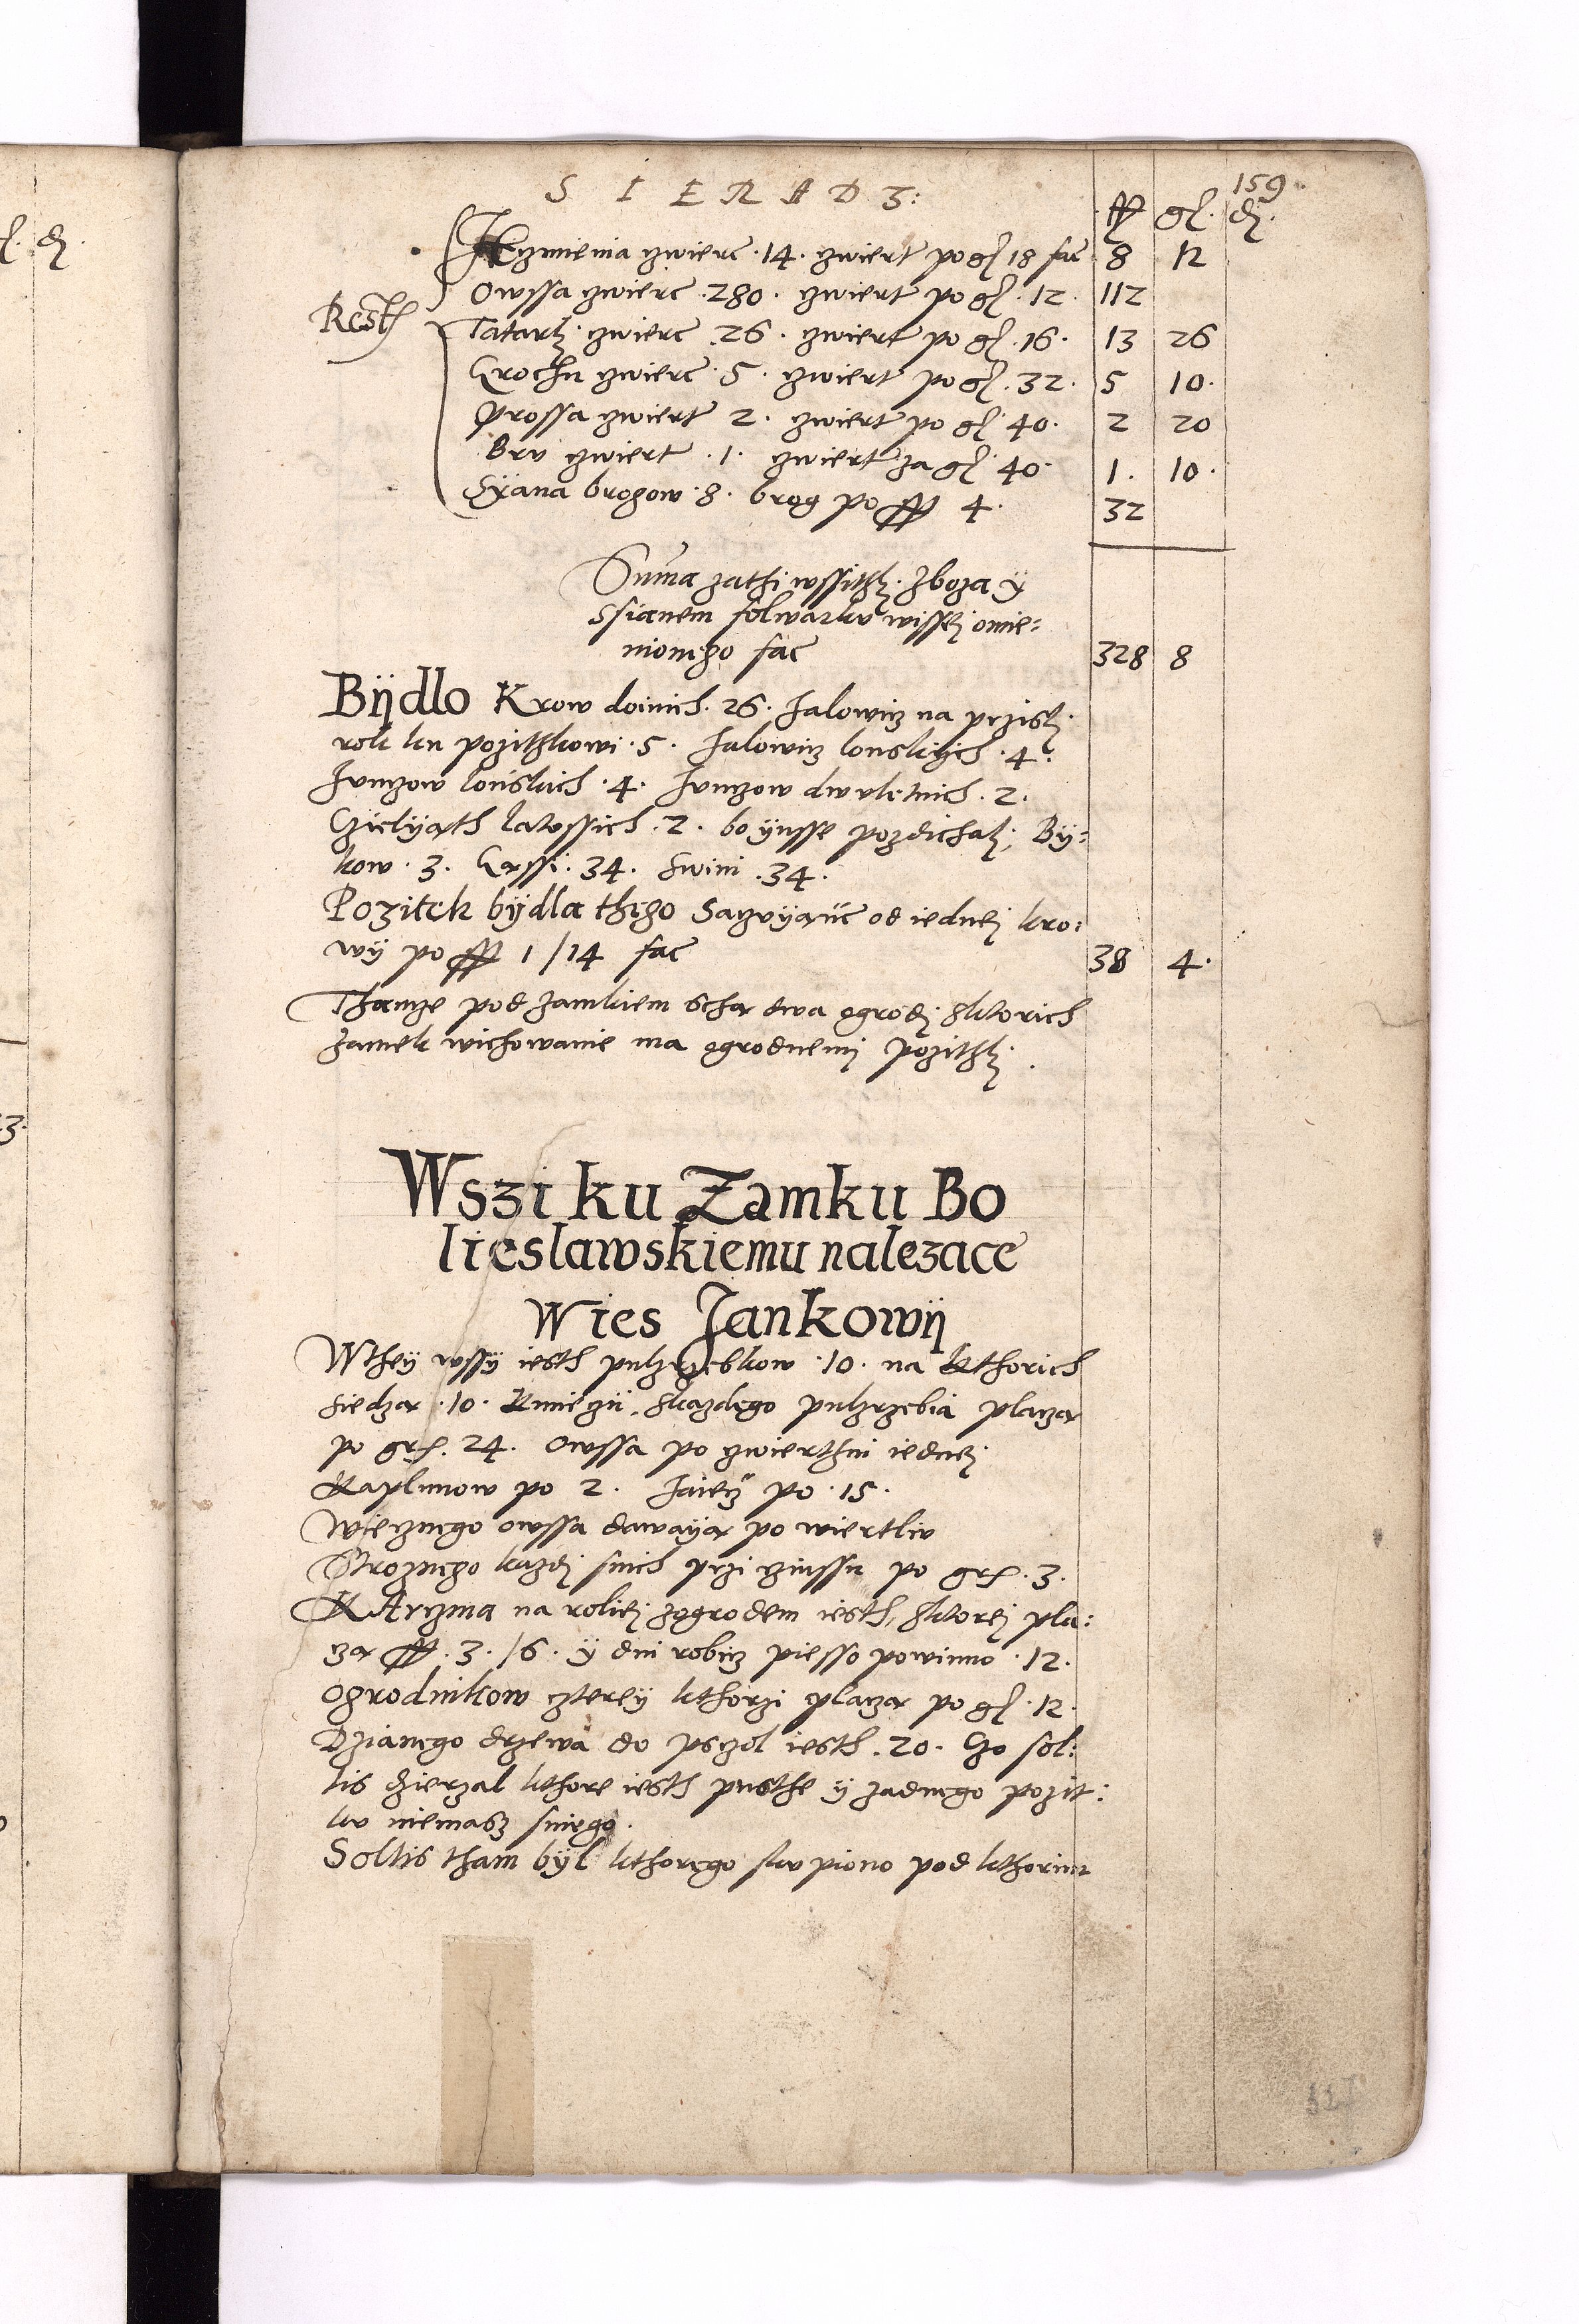 SIERADZ:
159.
ff gl. d.
Jęczmienia czwierc .14. czwiert po gl 18 fac 8 12
Owssa czwierc .280. czwiert po gl .12. 112
Resth
Tatarki czwierc .26. czwiert po gl .16. 13 26
Grochu czwierc .5. czwiert po gl .32. 5 10.
Prossa czwiert 2. czwiert po gl 40. 2 20
Bru czwiert .1. czwiert za gl 40. 1. 10.
Syana brogow .8. brog po ff 4. 32
Suma zathi wssitki zboza ÿ
Ssianem folwarku wissej omie:
nionego fac 328 8
Bÿdlo Krow doinich .26. Jalowicz na przisli
rok ku pozitkowi .5. Jalowicz lonskich .4.
Junczow lonskich .4. Junczow dwuletnich .2.
Czielÿath latossich .2. bo ÿnsse pozdichali; Bÿ:
kow .3. Gessi .34. swini .34.
Pozitek bÿdla thego Saczuÿąc od iednej kro:
wÿ po ff 1/14 fac 38 4.
Thamze pod zamkiem scha dwa ogrodi sktorich
zamek wichowanie ma ogrodnemi pozitki.
Wszi ku Zamku Bo
lieslawskiemu nalezace
Wies Jankowÿ
Wtheÿ wssÿ iesth pulrzebkow .10. na kthorich
siedza .10. Kmieczii, skazdego pulrzebia placza
po gr. 24. Owssa po czwierthni iednej
Kaplunow po 2. Jaiecz po .15.
Wiecznego owssa dawaÿa po wiertliu
Stroznego kazdi snich przi czinssu po gr. 3.
KArczma na roliej zogrodem iesth, sktorej pla:
cza ff .3./6. ÿ dni robicz piesso powinno .12.
Ogrodnikow cztereÿ kthorzi placza po gl .12.
Dzianego drzewa do psczol iesth .20. Czo sol:
tis dzierzal kthore iesth pusthe ÿ zadnego pozit:
ku niemasz sniego.
Soltis tham bÿl kthorego skupiono pod kthorim